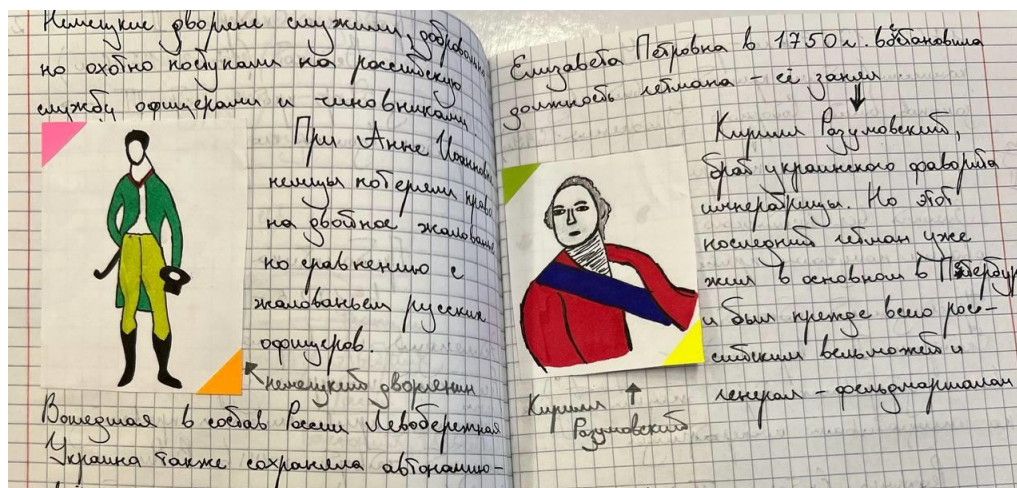 Немецкие дворяне служили добровольно
но охотно поступали на российскую
службу офицерами и чиновниками
При Анне Иоанновне
немцы потеряли право
на двойное жалование
по сравнению с
жалованьем русских
офицеров.
немецкий дворянин
Вошедшая в состав России Левобережная
Украина также сохраняла автономию-
Елизавета Петровна в 1750 г. восстановила
должность гетмана - её занял
Кирилл Разумовский,
брат украинского фаворита
императрицы. Но этот
последний гетман уже
жил в основном в Петербур
и был прежде всего рос-
сийским вельможей и
генерал-фельдмаршалом
Кирилл
Разумовский